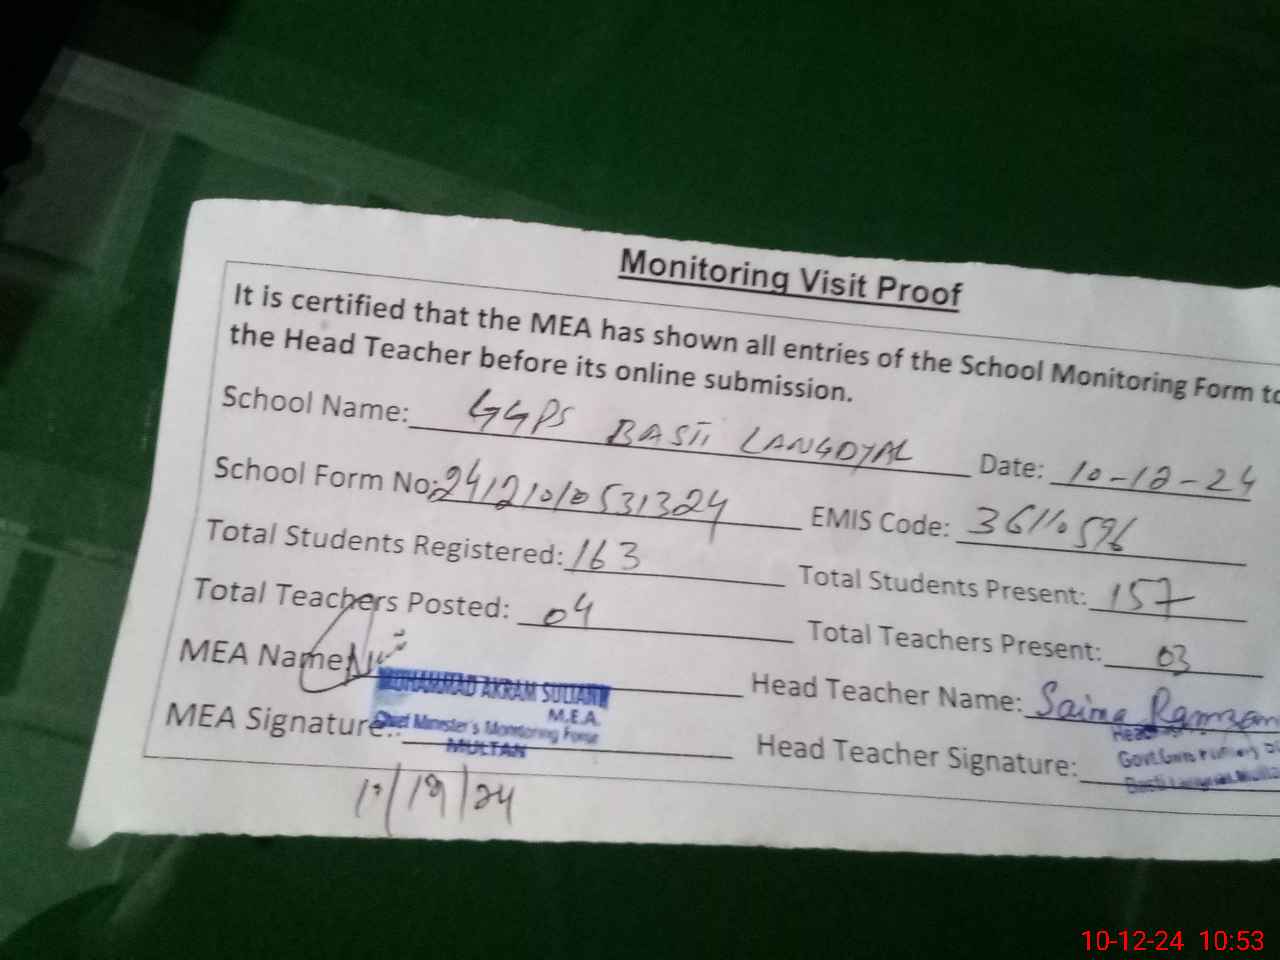 Monitoring Visit Proof
It is certified that the MEA has shown all entries of the School Monitoring Form to
the Head Teacher before its online submission.
School Name: GGPS BASTI LANGDYAL Date: 10-12-24
School Form No: 241210105 31324 EMIS Code: 36110596
Total Students Registered: 163 Total Students Present: 157
Total Teachers Posted: 04 Total Teachers Present: 03
MEA Name: Head Teacher Name: Saima Ramzan
MUHAMMAD AKRAM SULTANI
M.E.A.
MEA Signature: Head Teacher Signature:
Chief Minister's Monitoring Force
MULTAN
10/12/24
10-12-24 10:53